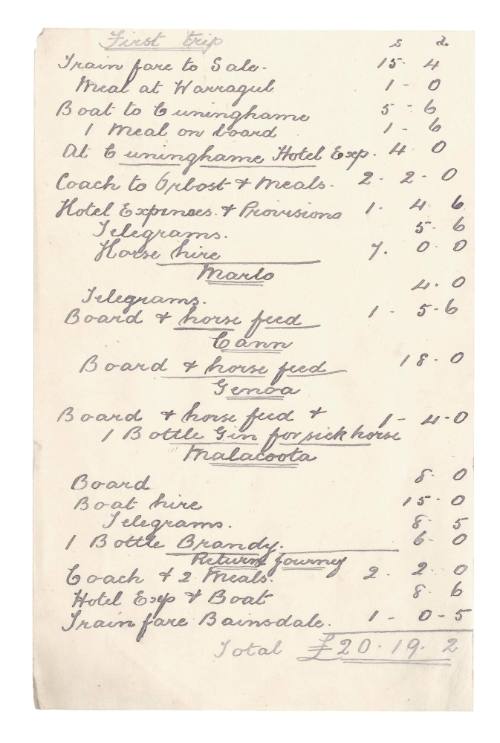 First trip s d
Train fare to Sale. 15 4
Meal at Warragul 1 - 0
Boat to Cuninghame 5 - 6
1 Meal on board 1 - 6
At Cuninghame Hotel Exp. 4 0
Coach to Orbost & Meals. 2 - 2 - 0
Hotel Expenses & Provisions 1 - 4 6
Telegrams. 5 - 6
Horse hire 7. 0 0
Marlo
4 - 0
Telegrams.
Board & horse feed 1 - 5 - 6
Cann
Board & horse feed 18 - 0
Genoa
Board & horse feed & 1 - 4 - 0
1 Bottle Gin for sick horse
Malacoota
Board 8 - 0
Boat hire 15 - 0
Telegrams. 8 - 5
1 Bottle Brandy. 6 - 0
Return journey
Coach & 2 Meals. 2 - 2 - 0
Hotel Exp & Boat 8 - 6
Train fare Bainsdale. 1 - 0 - 5
Total £20 - 19 - 2